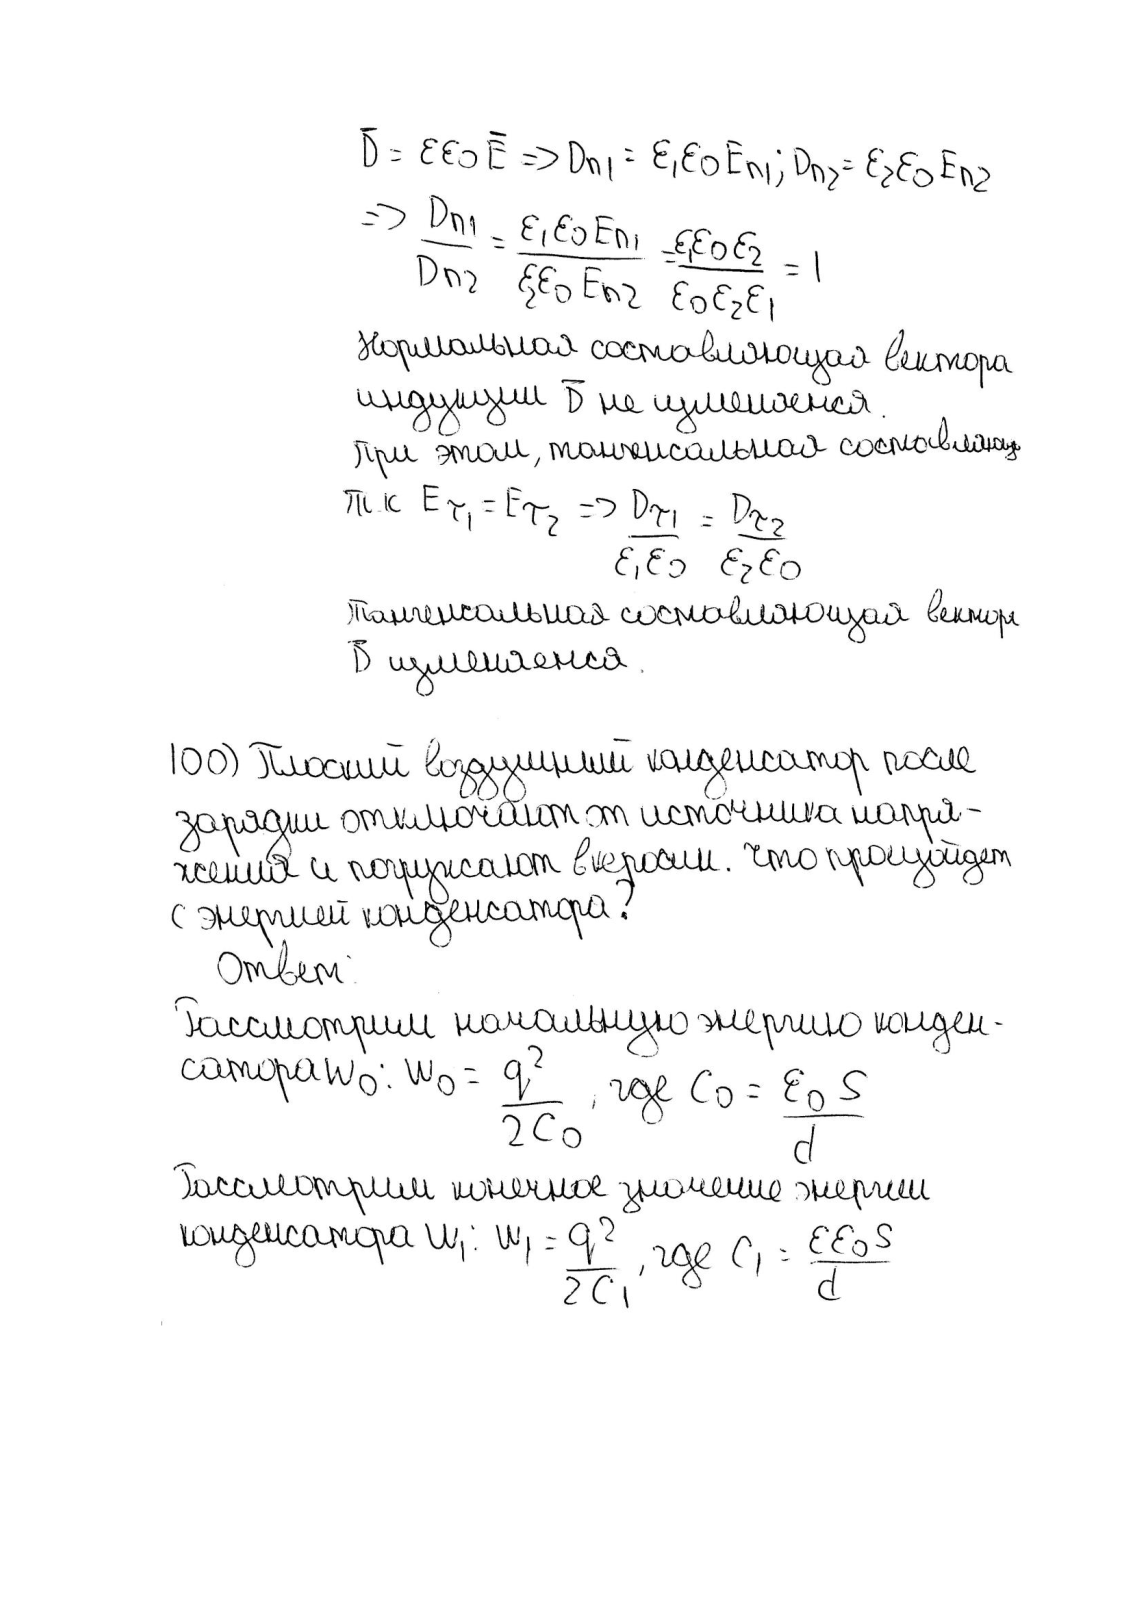 D̄ = εε₀Ē => Dn₁ = ε₁ε₀En₁; Dn₂ = ε₂ε₀En₂
=> Dn₁/Dn₂ = ε₁ε₀En₁/ε₂ε₀En₂ = ε₁ε₀ε₂/ε₀ε₂ε₁ = 1
Нормальная составляющая вектора
индукции D̄ не изменяется.
При этом, тангенсальная составляющ
т.к Eτ₁ = Eτ₂ => Dτ₁/ε₁ε₀ = Dτ₂/ε₂ε₀
Тангенсальная составляющая вектор
D̄ изменяется.
100) Плоский воздушный конденсатор после
зарядки отключают от источника напря-
жения и погружают в керосин. Что произойдет
с энергией конденсатора?
Ответ:
Рассмотрим начальную энергию конден-
сатора W₀: W₀ = q²/2C₀, где C₀ = ε₀S/d
Рассмотрим конечное значение энергии
конденсатора W₁: W₁ = q²/2C₁, где C₁ = εε₀S/d